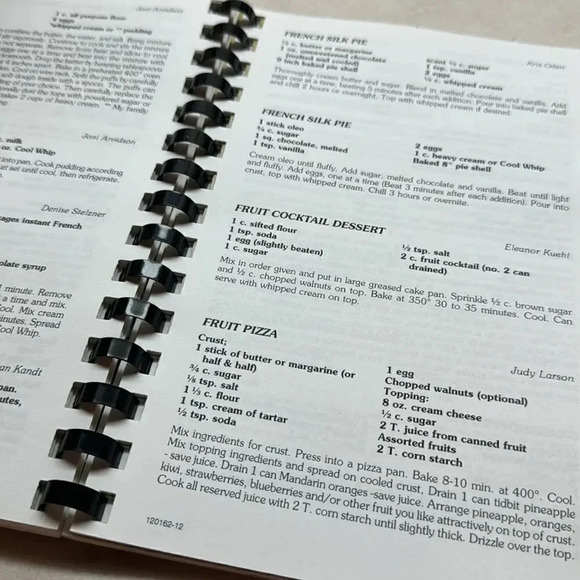 Joni Arvidson
1 c. all purpose flour
4 eggs
whipped cream or ** pudding
Joni Arvidson
c. milk
or. Cool Whip
into pan. Cook pudding according
set until cool, then refrigerate.
Denise Stelzner
ages instant French
olate syrup
1 minute. Remove
a time and mix.
ool. Mix cream
inutes. Spread
ool Whip.
an Kandt
pan.
utes,
FRENCH SILK PIE
Kris Oden
½ c. butter or margarine
1 oz. unsweetened chocolate
(melted and cooled)
9 inch baked pie shell
scant ¾ c. sugar
1 tsp. vanilla
2 eggs
½ c. whipped cream
Thoroughly cream butter and sugar. Blend in melted chocolate and vanilla. Add
eggs one at a time, beating 5 minutes after each addition. Pour into baked pie shell
and chill 2 hours or overnight. Top with whipped cream if desired.
FRENCH SILK PIE
1 stick oleo
¾ c. sugar
1 sq. chocolate, melted
1 tsp. vanilla
2 eggs
1 c. heavy cream or Cool Whip
Baked 8" pie shell
Cream oleo until fluffy. Add sugar, melted chocolate and vanilla. Beat until light
and fluffy. Add eggs, one at a time (Beat 3 minutes after each addition). Pour into
crust, top with whipped cream. Chill 3 hours or overnite.
FRUIT COCKTAIL DESSERT
Eleanor Kuehl
1 c. sifted flour
1 tsp. soda
1 egg (slightly beaten)
1 c. sugar
½ tsp. salt
2 c. fruit cocktail (no. 2 can
drained)
Mix in order given and put in large greased cake pan. Sprinkle ½ c. brown sugar
and ½ c. chopped walnuts on top. Bake at 350° 30 to 35 minutes. Cool. Can
serve with whipped cream on top.
FRUIT PIZZA
Judy Larson
Crust;
1 stick of butter or margarine (or
half & half)
¾ c. sugar
⅛ tsp. salt
1 ⅓ c. flour
1 tsp. cream of tartar
½ tsp. soda
1 egg
Chopped walnuts (optional)
Topping:
8 oz. cream cheese
½ c. sugar
2 T. juice from canned fruit
Assorted fruits
2 T. corn starch
Mix ingredients for crust. Press into a pizza pan. Bake 8-10 min. at 400°. Cool.
Mix topping ingredients and spread on cooled crust, Drain 1 can tidbit pineapple
- save juice. Drain 1 can Mandarin oranges -save juice. Arrange pineapple, oranges,
kiwi, strawberries, blueberries and/or other fruit you like attractively on top of crust.
Cook all reserved juice with 2 T. corn starch until slightly thick. Drizzle over the top.
120162-12